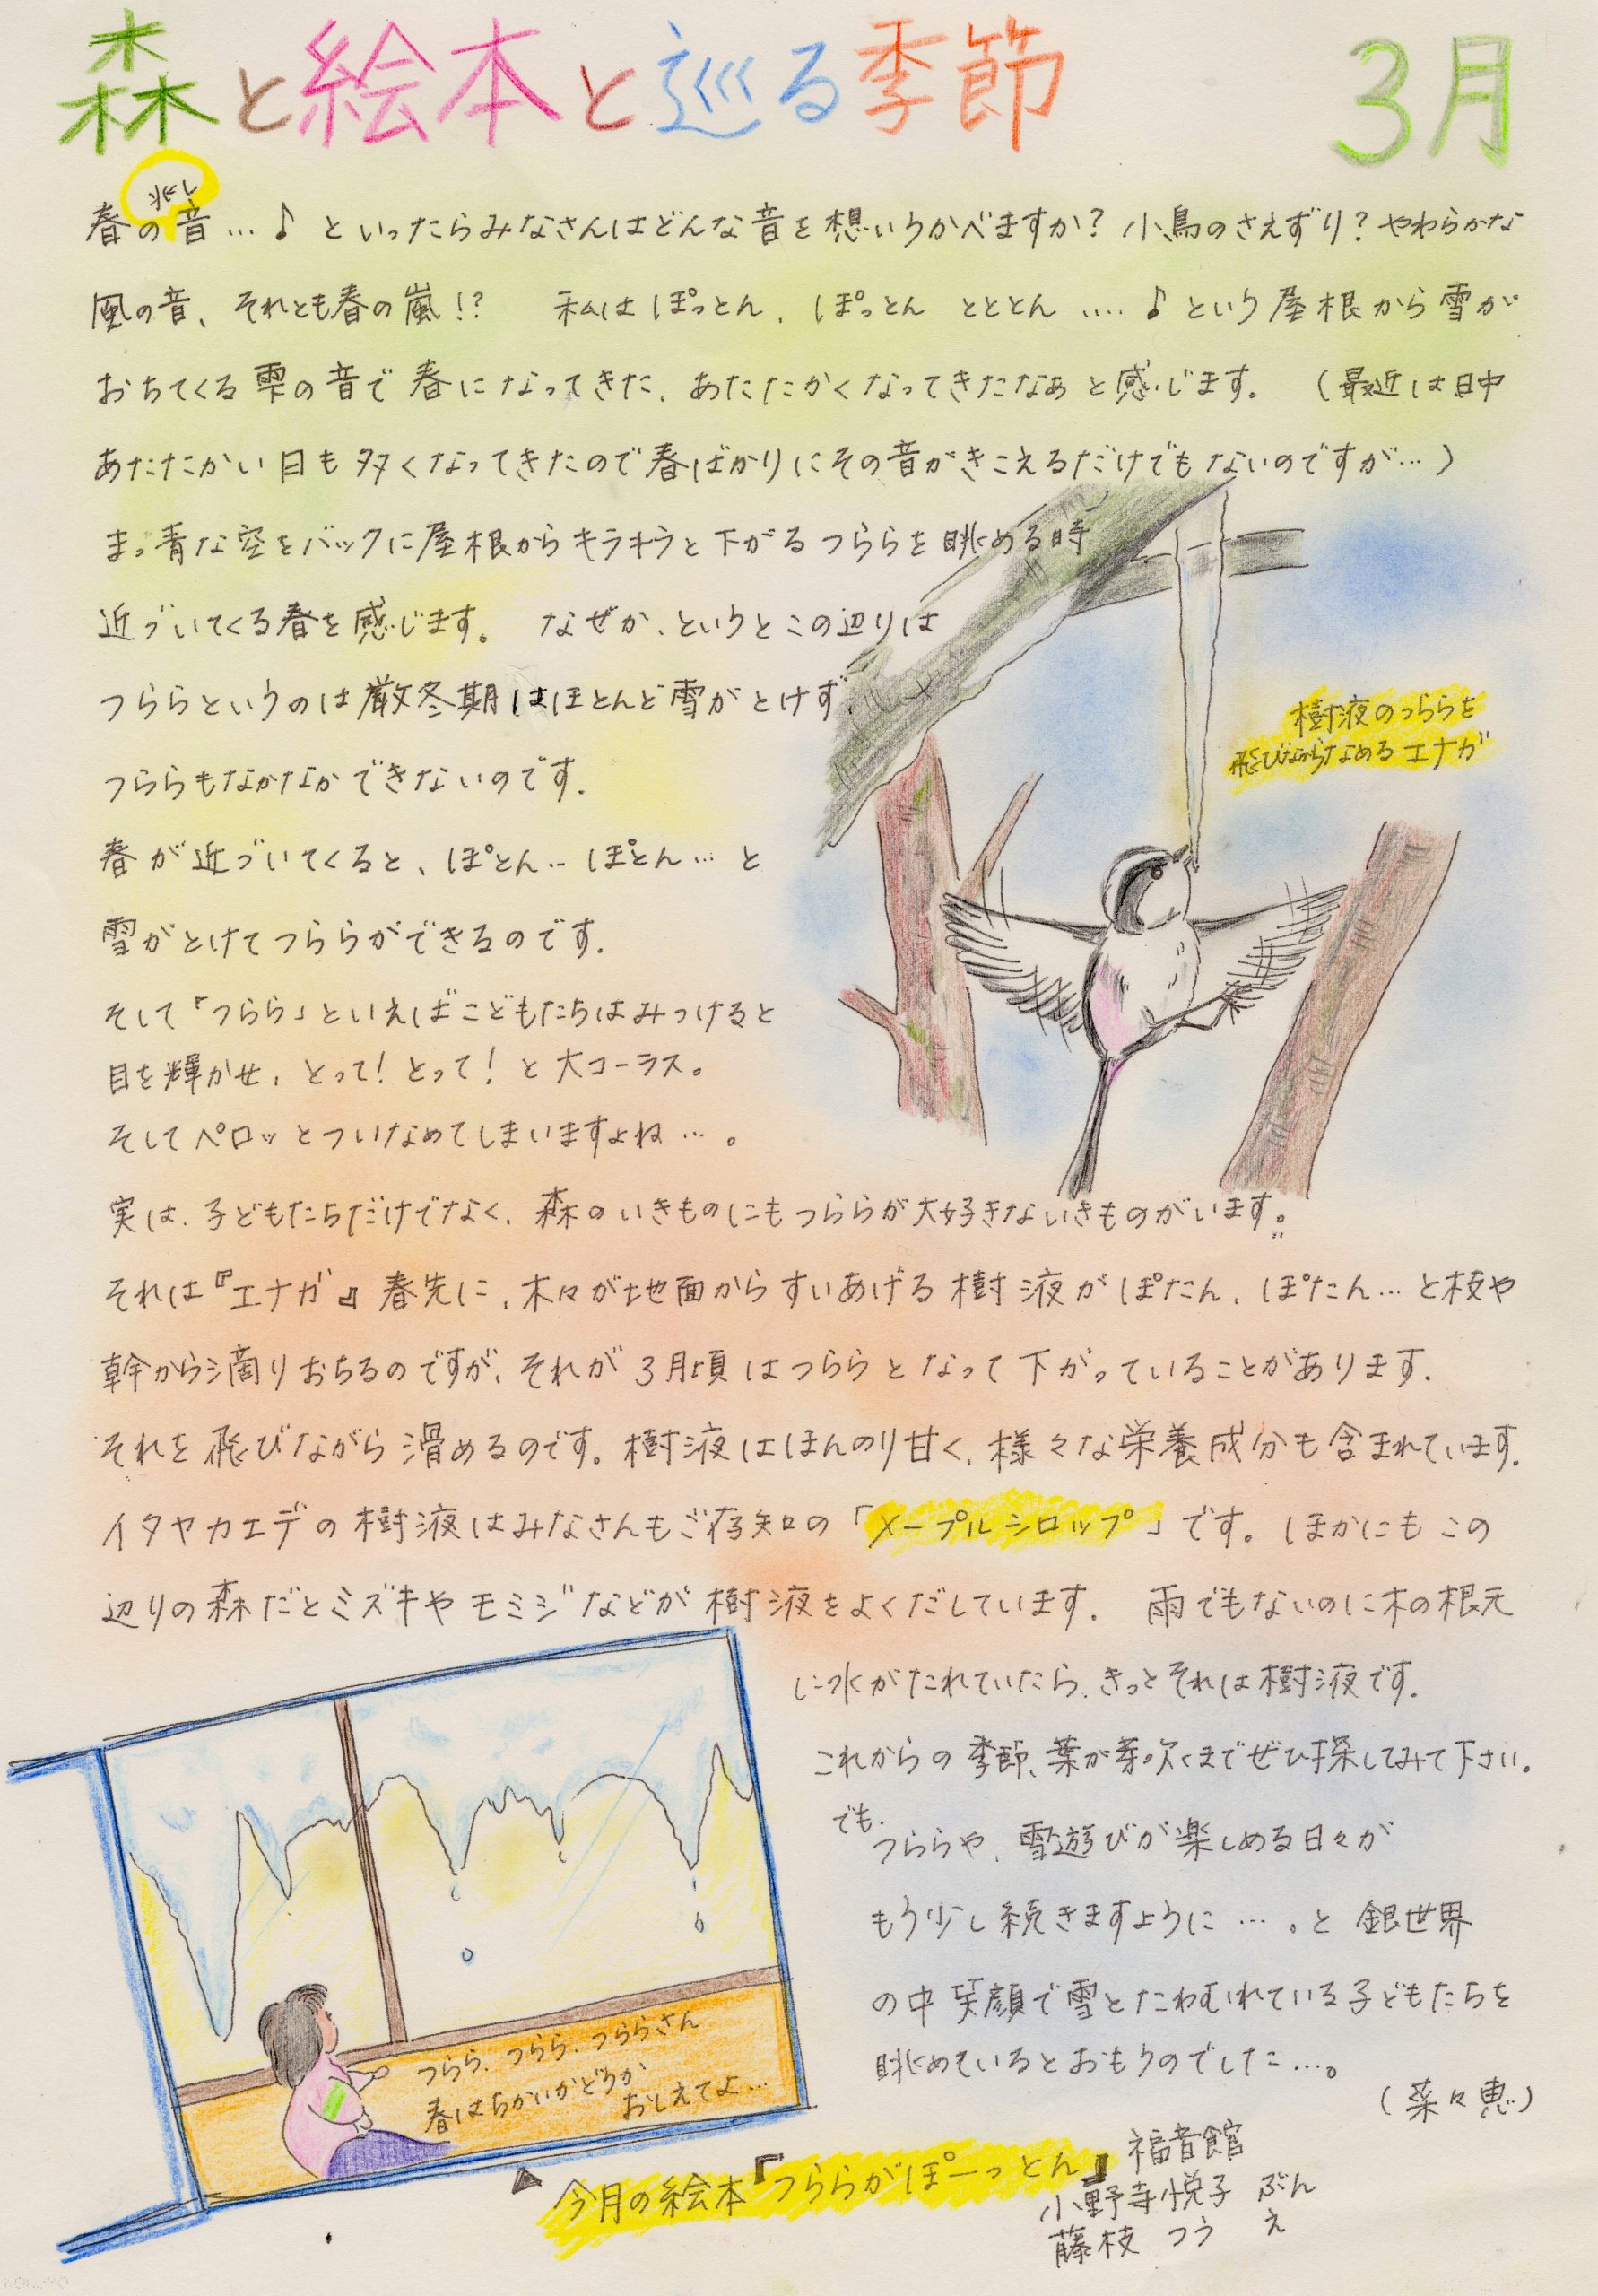 森と絵本と巡る季節 3月
春の兆し音…♪ といったらみなさんはどんな音を想いうかべますか？ 小鳥のさえずり？ やわらかな
風の音、それとも春の嵐!? 私はぽっとん、ぽっとん とととん ….♪ という屋根から雪が
おちてくる雫の音で春になってきた、あたたかくなってきたなぁと感じます。 （最近は日中
あたたかい日も多くなってきたので春ばかりにその音がきこえるだけでもないのですが…）
まっ青な空をバックに屋根からキラキラと下がるつららを眺める時
近づいてくる春を感じます。 なぜか、というとこの辺りは
つららというのは厳冬期はほとんど雪がとけず、
つららもなかなかできないのです。
春が近づいてくると、ぽとん‥ぽとん…と
雪がとけてつららができるのです。
そして「つらら」といえばこどもたちはみつけると
目を輝かせ、とって！とって！と大コーラス。
そしてペロッとついなめてしまいますよね…。
樹液のつららを
飛びながらなめるエナガ
実は、子どもたちだけでなく、森のいきものにもつららが大好きないきものがいます。
それは『エナガ』春先に、木々が地面からすいあげる樹液がぽたん、ぽたん…と枝や
幹から滴りおちるのですが、それが3月頃はつららとなって下がっていることがあります。
それを飛びながら滑めるのです。樹液はほんのり甘く、様々な栄養成分も含まれています。
イタヤカエデの樹液はみなさんもご存知の「メープルシロップ」です。ほかにもこの
辺りの森だとミズキやモミジなどが樹液をよくだしています。 雨でもないのに木の根元
に水がたれていたら、きっとそれは樹液です。
これからの季節、葉が芽吹くまでぜひ探してみて下さい。
でも、
つららや、雪遊びが楽しめる日々が
もう少し続きますように…。と銀世界
の中笑顔で雪とたわむれている子どもたちを
眺めているとおもうのでした…。
（菜々恵）
つらら、つらら、つららさん
春はちかいかどうか
おしえてよ…
▲今月の絵本『つららがぽーっとん』福音館
小野寺悦子 ぶん
藤枝 つう え